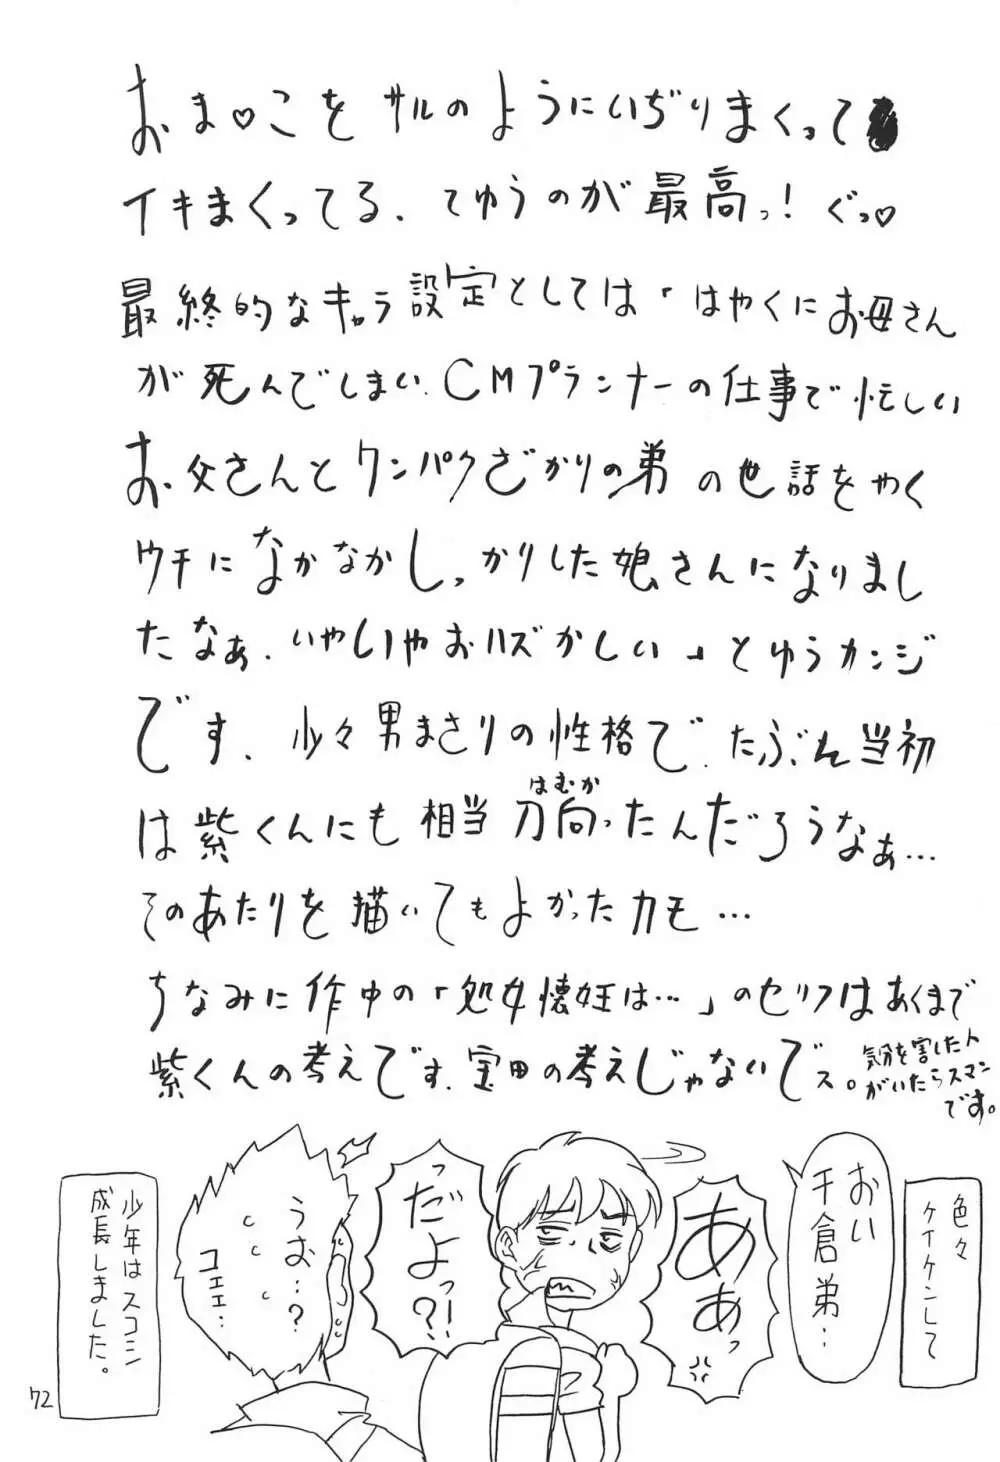 おま♡こをサルのようにいぢりまくって
イキまくってる、てゆうのが最高っ! ぐっ♡
最終的なキャラ設定としては「はやくにお母さん
が死んでしまい、CMプランナーの仕事で忙しい
お父さんとワンパクざかりの弟の世話をやく
ウチになかなかしっかりした娘さんになりまし
たなぁ、いやしいやおハズかしい」とゆうカンジ
です、少々男まさりの性格で、たぶん当初
は紫くんにも相当刀向ったんだろうなぁ…
はむか
そのあたりを描いてもよかったカモ…
ちなみに作中の「処女懐妊は…」のセリフはあくまで
紫くんの考えです、宝田の考えじゃないでス。
気分を害した人
がいたらスマン
です。
色々
ケイケンして
おい
千倉弟…
あぁっ
っだよっ!?
うお…?
コエエ…
少年はスコシ
成長しました。
72